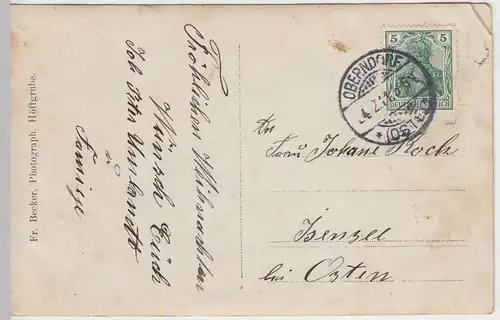 Fr. Becker, Photograph. Höftgrube.
Fröhlichen Weihnachten
Wünsch Euch
Joh Ptr Umlandt
u
Familje
5 5
DEUTSCHES REICH
OBERNDORF
(OSTE)
An
Frau Johane Kock
Isensee
bei Osten